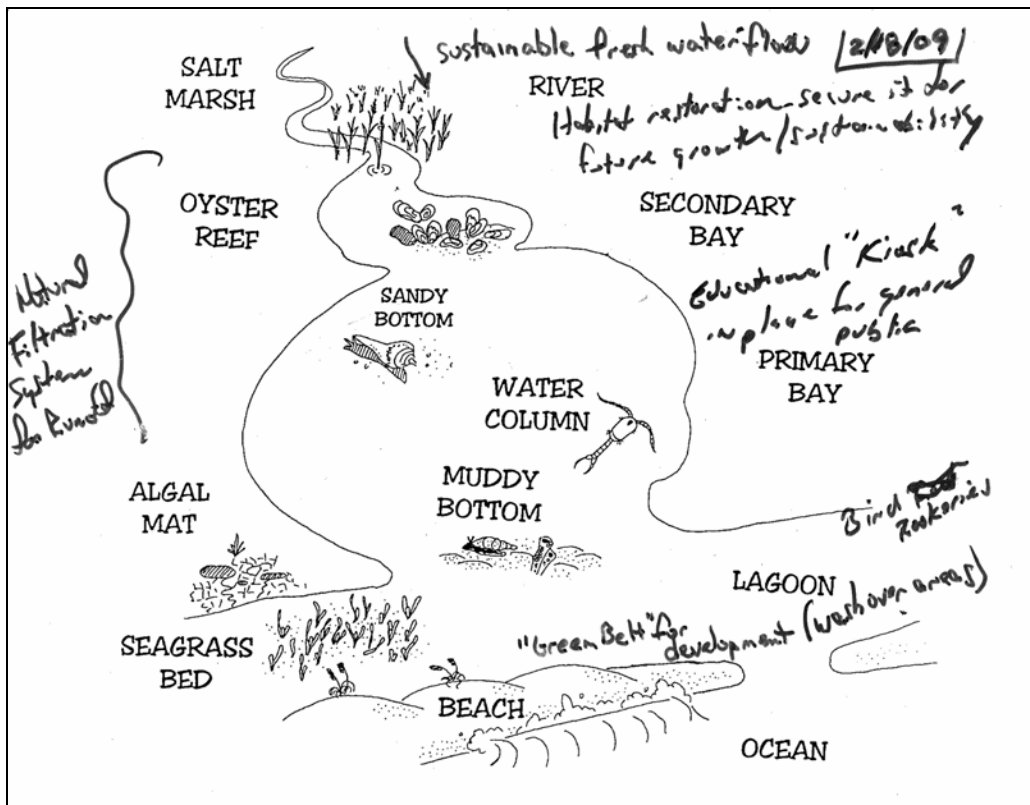 sustainable fresh water flows 2/18/09
SALT
MARSH
RIVER
Habitat restoration - secure it for
future growth/sustainability
OYSTER
REEF
SECONDARY
BAY
Educational "Kiosk"
in place for general
public
Natural
Filtration
System
for Runoff
SANDY
BOTTOM
PRIMARY
BAY
WATER
COLUMN
ALGAL
MAT
MUDDY
BOTTOM
Bird
Rookeries
LAGOON
"Green Belt" for
development (washover areas)
SEAGRASS
BED
BEACH
OCEAN